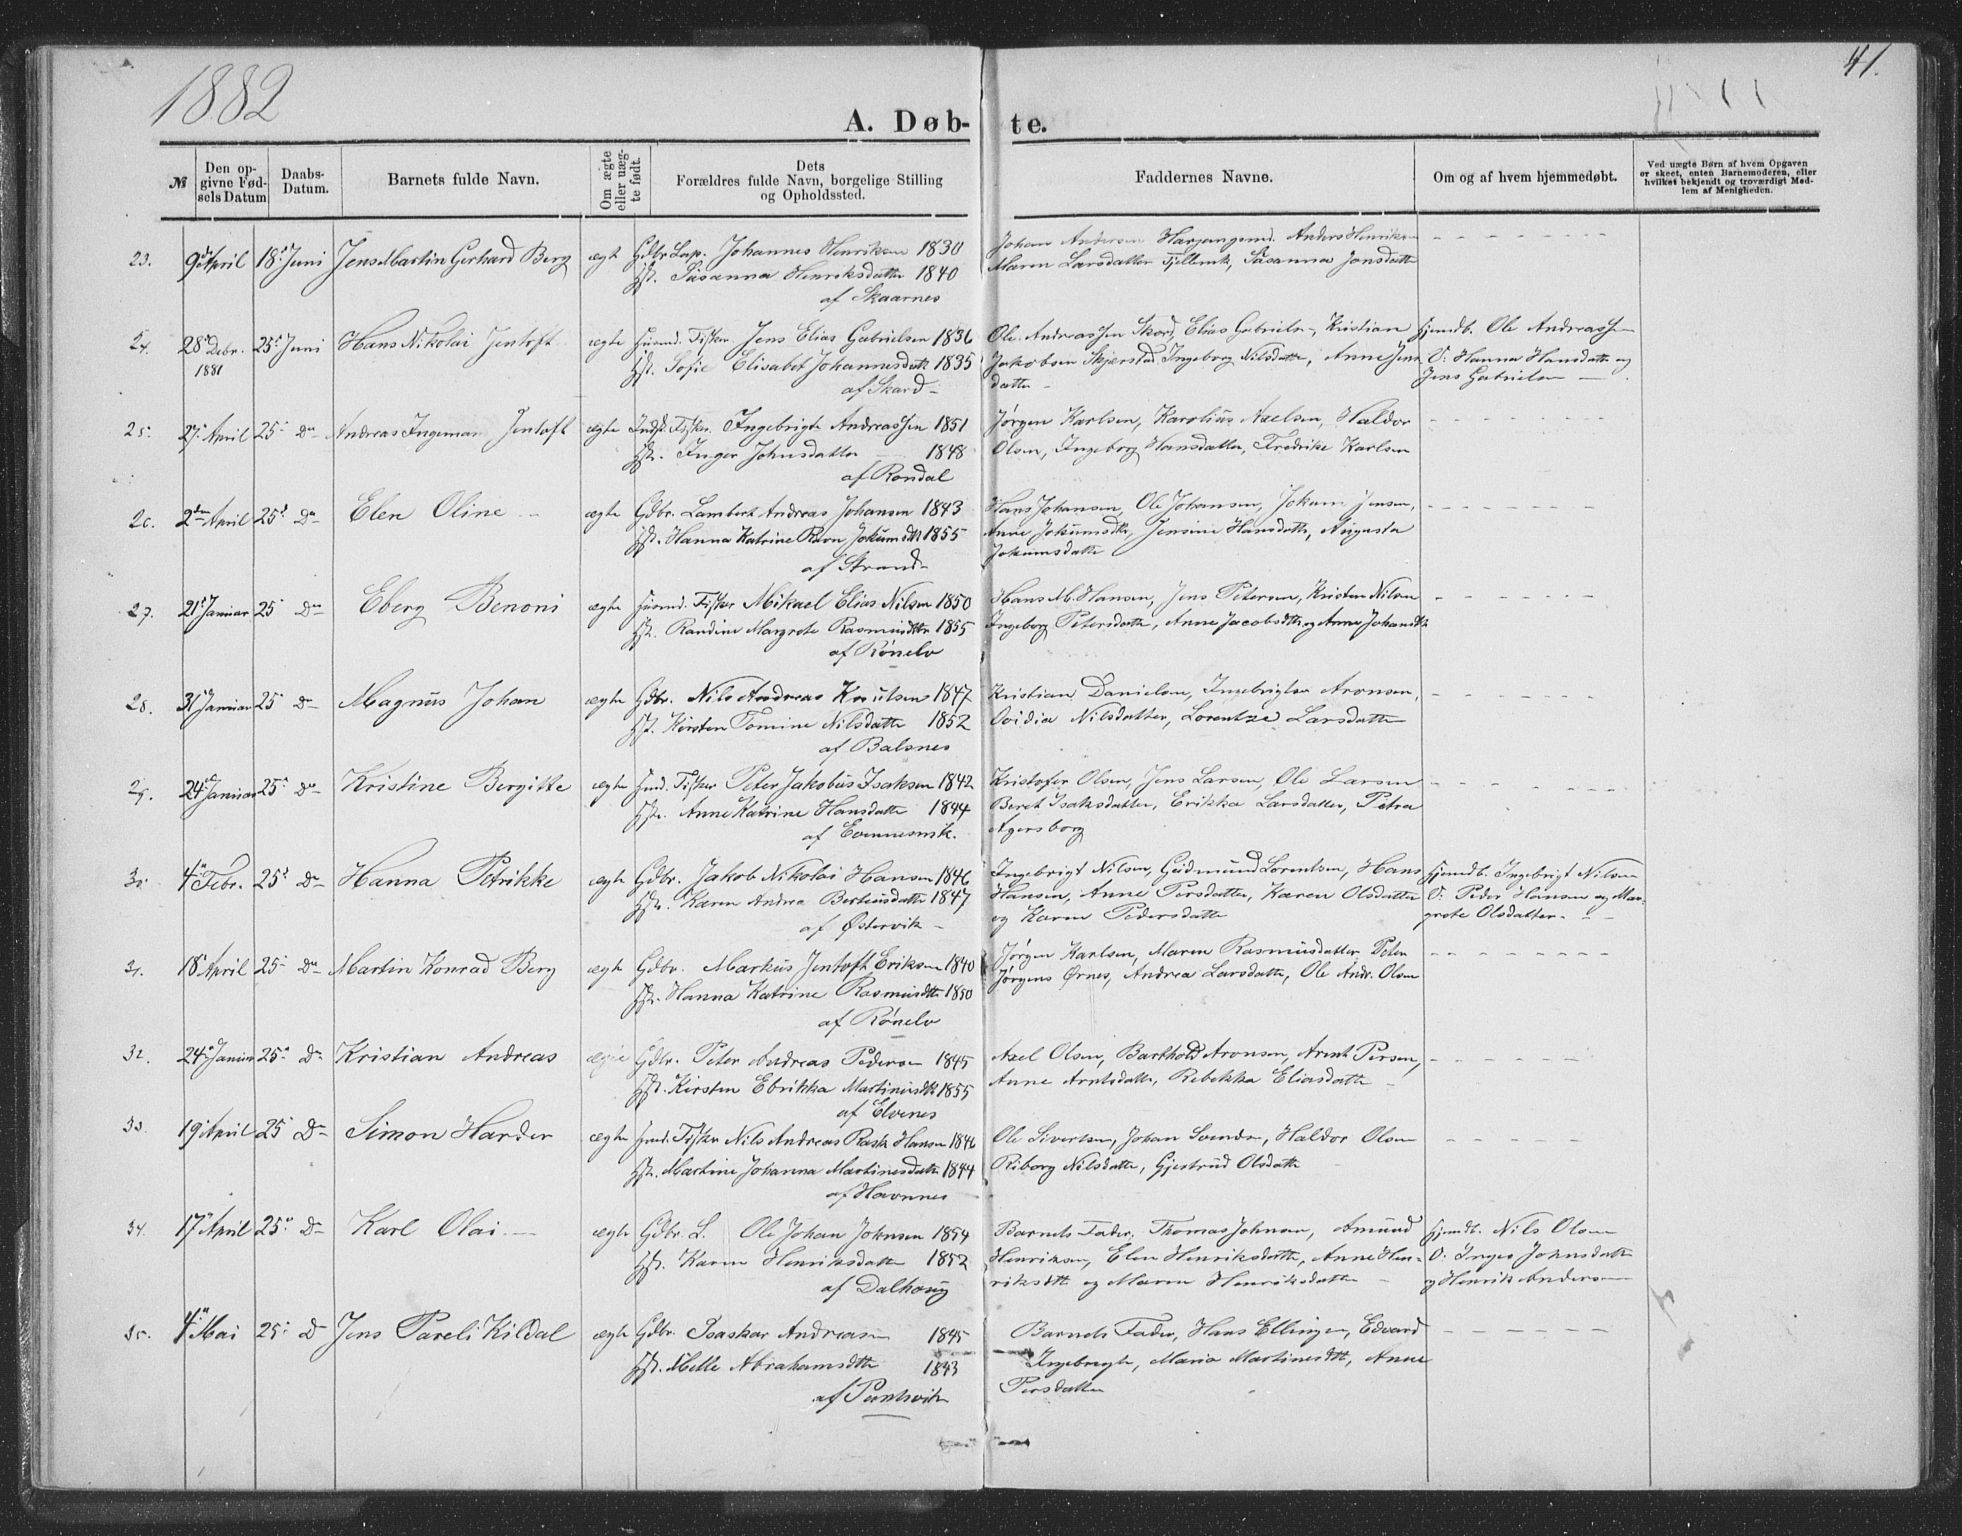 1882
41.
A. Døb- te.
№ Den opgivne Fødsels Datum Daabs-Datum. Barnets fulde Navn. Om ægte eller uægte født. Dets Forældres fulde Navn, borgelige Stilling og Opholdssted. Faddernes Navne. Om og af hvem hjemmedøbt. Ved uægte Børn af hvem Opgaven er skeet, enten Barnemoderen, eller hvilket bekjendt og troværdigt Medlem af Menigheden.
23. 9de April 18de Juni Jens Martin Gerhard Berg ægte Gdbr. Lap. Johannes Henriksen 1830 Johan Andersen Anders Henriksen
Hst. Susanna Henriksdatter 1840 Maren Larsdatter Susanna Jonsdatter
af Skaarnes
24. 28de Debr. 1881 25de Juni Hans Nikolai Jentoft ægte Husmd. Fisker Jens Elias Gabrielsen 1836 Ole Andreassen Skard, Elias Gabrielsen, Kristian hjemdb. Ole Andreassen
Hst. Sofie Elisabet Johannesdatter 1835 Jakobsen Skjerstad Ingeborg Nilsdatter, Anne Jens V: Hanna Hansdatter og
af Skard datter Jens Gabrielsen
25. 27de April 25de Do Andreas Ingeman Jentoft ægte Inds. Fisker Ingebrigt Andreassen 1851 Jørgen Karlsen, Karolius Axelsen, Haldor
Hst. Inger Johnsdatter 1848 Olsen, Ingeborg Hansdatter, Fredrike Karlsen
af Rondal
26. 2den April 25de Do Elen Oline ægte Gdbr. Lambert Andreas Johansen 1843 Hans Johansen, Ole Johansen, Jokum Jensen,
Hst. Hanna Katrine Ravn Jokumsdtr 1855 Anne Jokumsdtr, Jensine Hansdatter, Augusta
af Strand Jokumsdatter
27. 21de Januar 25 Do Eberg Benoni ægte Husmd. Fisker Mikael Elias Nilsen 1850 Hans M. Hansen, Jens Petersen, Kristen Nilsen
Hst. Randine Margrete Rasmusdtr 1855 Ingeborg Petersdatter, Anne Jacobsdtr og Anne Johansdtr
af Rønelv
28. 31 Januar 25 Do Magnus Johan ægte Gdbr. Nils Andreas Knutsen 1847 Kristian Danielsen, Ingebrigtsen Aronsen,
Hst. Kirsten Tomine Nilsdatter 1852 Ovidia Nilsdatter, Lorentze Larsdatter
af Balsnes
29. 24de Januar 25de Do Kristine Bergitte ægte Inds. Fisker Peter Jakobus Isaksen 1842 Kristofer Olsen, Jens Larsen, Ole Larsen
Hst. Anne Katrine Hansdatter 1844 Beret Isaksdatter, Erikka Larsdatter, Petra
af Evennesvik. Agersborg
30. 4de Febr. 25de Do Hanna Petrikke ægte Gdbr. Jakob Nikolai Hansen 1846 Ingebrigt Nilsen, Gudmund Lorentsen, Hans hjemdb. Ingebrigt Nilsen
Hst. Karen Andrea Berteusdatter 1847 Hansen, Anne Persdatter, Karen Olsdatter V: Peder Hansen og Mar-
af Østervik og Karen Pedersdatter grete Olsdatter
31. 18de April 25 Do Martin Konrad Berg ægte Gdbr. Markus Jentoft Eriksen 1840 Jørgen Karlsen, Maren Rasmusdatter Peter
Hst. Hanna Katrine Rasmusdtr 1850 Jørgens Ørnes, Andrea Larsdatter, Ole Andr. Olsen
af Rønelv
32. 24de Januar 25de Do Kristian Andreas ægte Gdbr. Peter Andreas Pedersen 1845 Axel Olsen, Barthold Aronsen, Arent Persen,
Hst. Kirsten Ebrikka Martinusdtr 1855 Anne Arntsdatter, Rebekka Eliasdatter
af Elvenes
33. 19 April 25 Do Simon Harder ægte Inds. Fisker Nils Andreas Rask Hansen 1846 Ole Sivertsen, Johan Svendsen, Haldor Olsen
Hst. Martine Johanna Martinesdatter 1844 Riborg Nilsdatter, Gjertrud Olsdatter
af Havnnes
34. 17de April 25de Do Karl Olai ægte Gdbr. L. Ole Johan Johnsen 1854 Barnets Fader, Thomas Johnsen, Amund hjemdb. Nils Olsen
Hst. Karen Henriksdatter 1852 Henriksen, Elen Henriksdatter, Anne Hen- V. Inger Johnsdatter
af Dalhaug riksdtr og Maren Henriksdatter og Henrik Andersen
35. 4de Mai 25de Do Jens Pareli Kildal ægte Gdbr. Isaskar Andreasen 1845 Barnets Fader, Hans Ellingsen, Edvard
Hst. Mille Abrahamsdtr 1843 Ingebregts, Maria Martinesdtr, Anne
af Persdatter